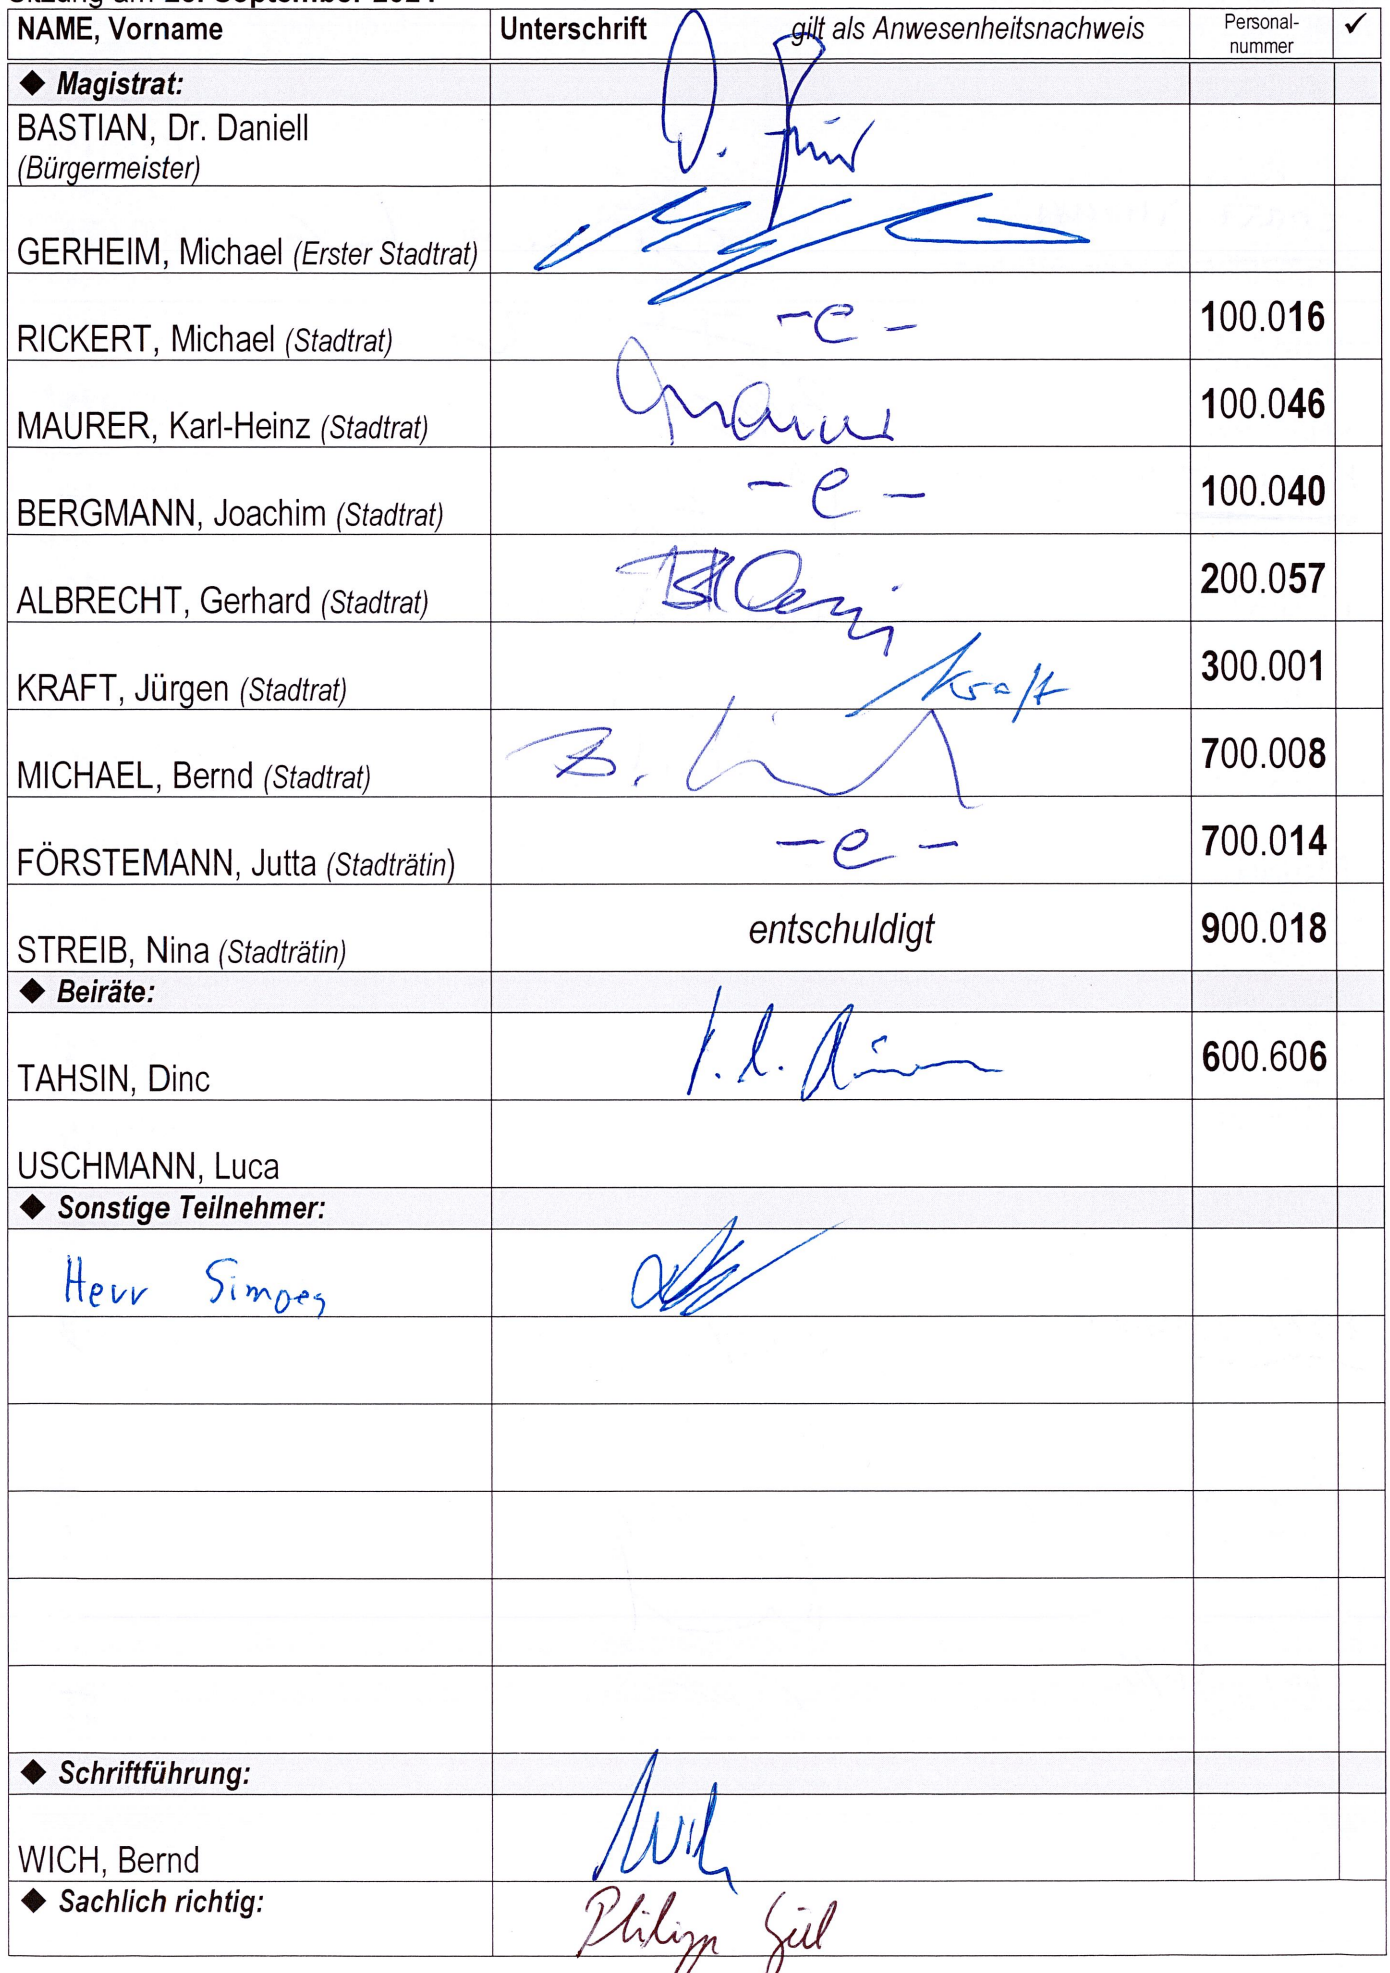 NAME, Vorname Unterschrift gilt als Anwesenheitsnachweis Personal-
nummer ✓
◆ Magistrat:
BASTIAN, Dr. Daniell
(Bürgermeister)
GERHEIM, Michael (Erster Stadtrat)
RICKERT, Michael (Stadtrat) - e - 100.016
MAURER, Karl-Heinz (Stadtrat) 100.046
BERGMANN, Joachim (Stadtrat) - e - 100.040
ALBRECHT, Gerhard (Stadtrat) 200.057
KRAFT, Jürgen (Stadtrat) Kraft 300.001
MICHAEL, Bernd (Stadtrat) 700.008
FÖRSTEMANN, Jutta (Stadträtin) - e - 700.014
STREIB, Nina (Stadträtin) entschuldigt 900.018
◆ Beiräte:
TAHSIN, Dinc 600.606
USCHMANN, Luca
◆ Sonstige Teilnehmer:
Herr Simoes
◆ Schriftführung:
WICH, Bernd Wich
◆ Sachlich richtig: Philipp